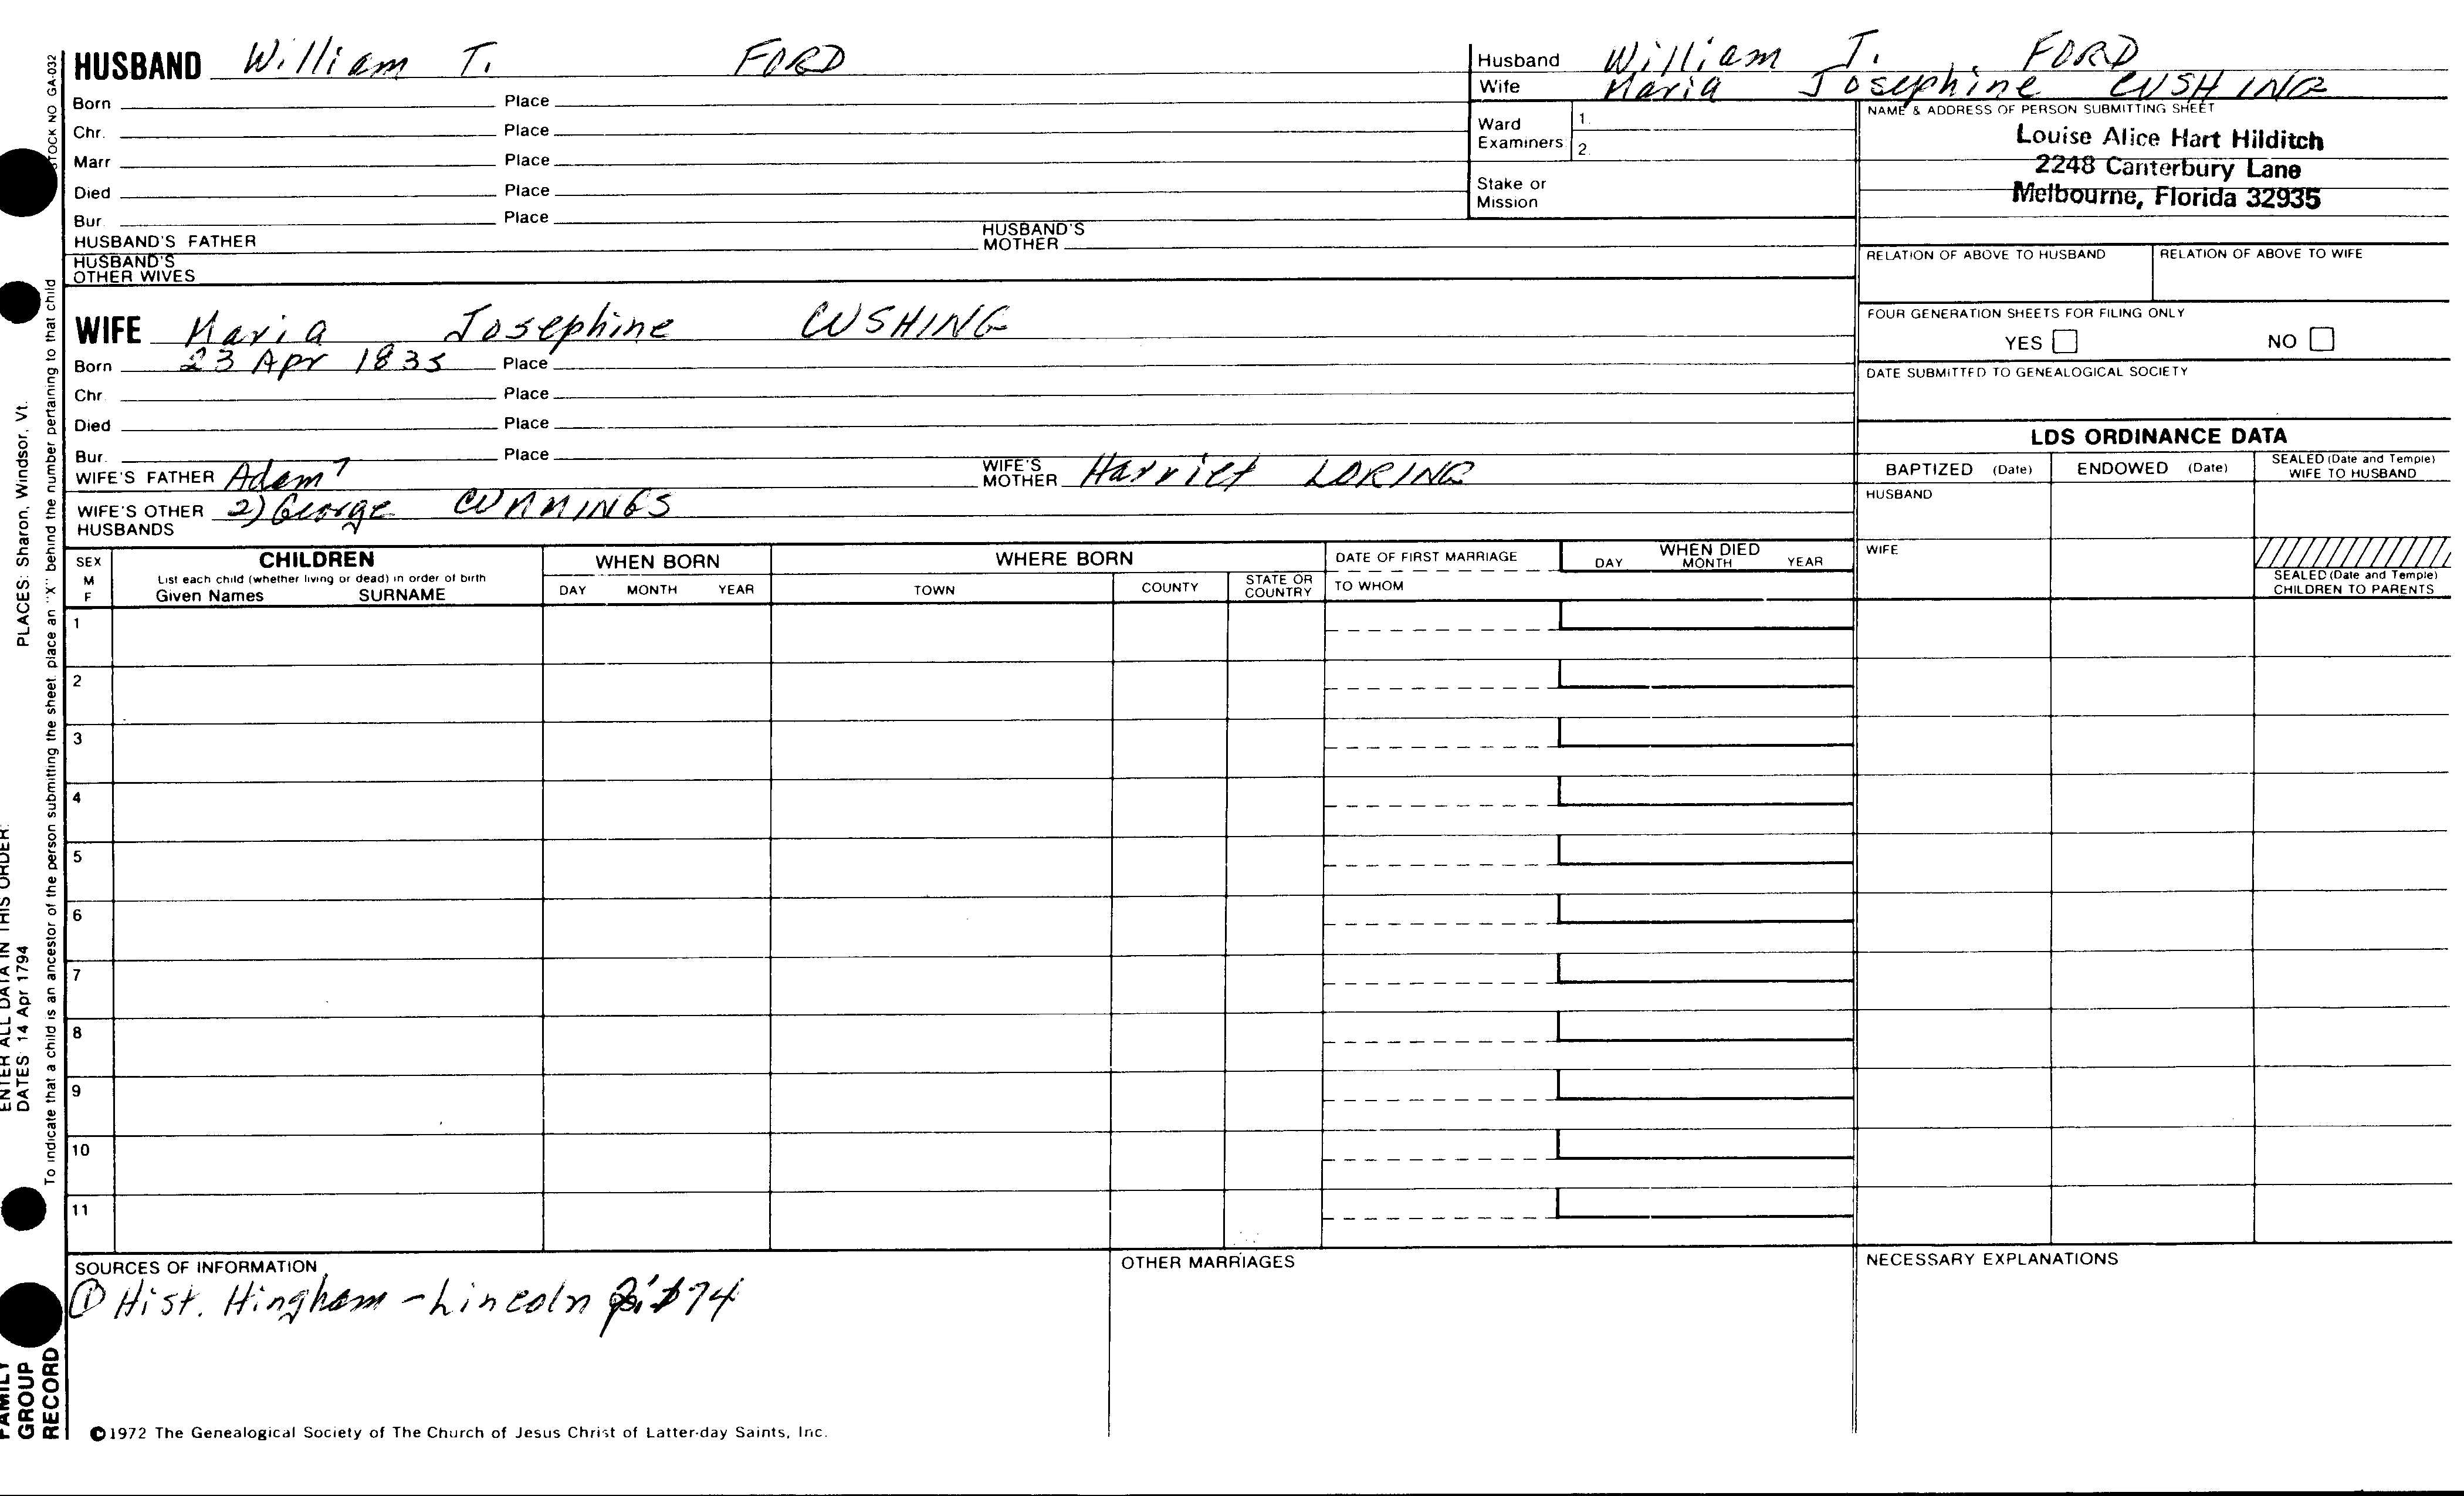 HUSBAND William T. FORD
Born Place
Chr. Place
Marr Place
Died Place
Bur. Place
HUSBAND'S FATHER HUSBAND'S MOTHER
HUSBAND'S OTHER WIVES
Husband William T. FORD
Wife Maria Josephine CUSHING
Ward Examiners 1. 2.
Stake or Mission
NAME & ADDRESS OF PERSON SUBMITTING SHEET
Louise Alice Hart Hilditch
2248 Canterbury Lane
Melbourne, Florida 32935
RELATION OF ABOVE TO HUSBAND RELATION OF ABOVE TO WIFE
FOUR GENERATION SHEETS FOR FILING ONLY
YES NO
DATE SUBMITTED TO GENEALOGICAL SOCIETY
WIFE Maria Josephine CUSHING
Born 23 Apr 1835 Place
Chr. Place
Died Place
Bur. Place
WIFE'S FATHER Adam 7 WIFE'S MOTHER Harriet LORING
WIFE'S OTHER HUSBANDS 2) George CUMMINGS
LDS ORDINANCE DATA
BAPTIZED (Date) ENDOWED (Date) SEALED (Date and Temple) WIFE TO HUSBAND
HUSBAND
WIFE
SEALED (Date and Temple) CHILDREN TO PARENTS
SEX M F
CHILDREN
List each child (whether living or dead) in order of birth
Given Names SURNAME
WHEN BORN
DAY MONTH YEAR
WHERE BORN
TOWN COUNTY STATE OR COUNTRY
DATE OF FIRST MARRIAGE
TO WHOM
WHEN DIED
DAY MONTH YEAR
1
2
3
4
5
6
7
8
9
10
11
SOURCES OF INFORMATION
① Hist. Hingham - Lincoln 74
OTHER MARRIAGES
NECESSARY EXPLANATIONS
©1972 The Genealogical Society of The Church of Jesus Christ of Latter-day Saints, Inc.
STOCK NO GA-032
To indicate that a child is an ancestor of the person submitting the sheet, place an "X" behind the number pertaining to that child
ENTER ALL DATA IN THIS ORDER:
DATES: 14 Apr 1794 PLACES: Sharon, Windsor, Vt.
FAMILY GROUP RECORD